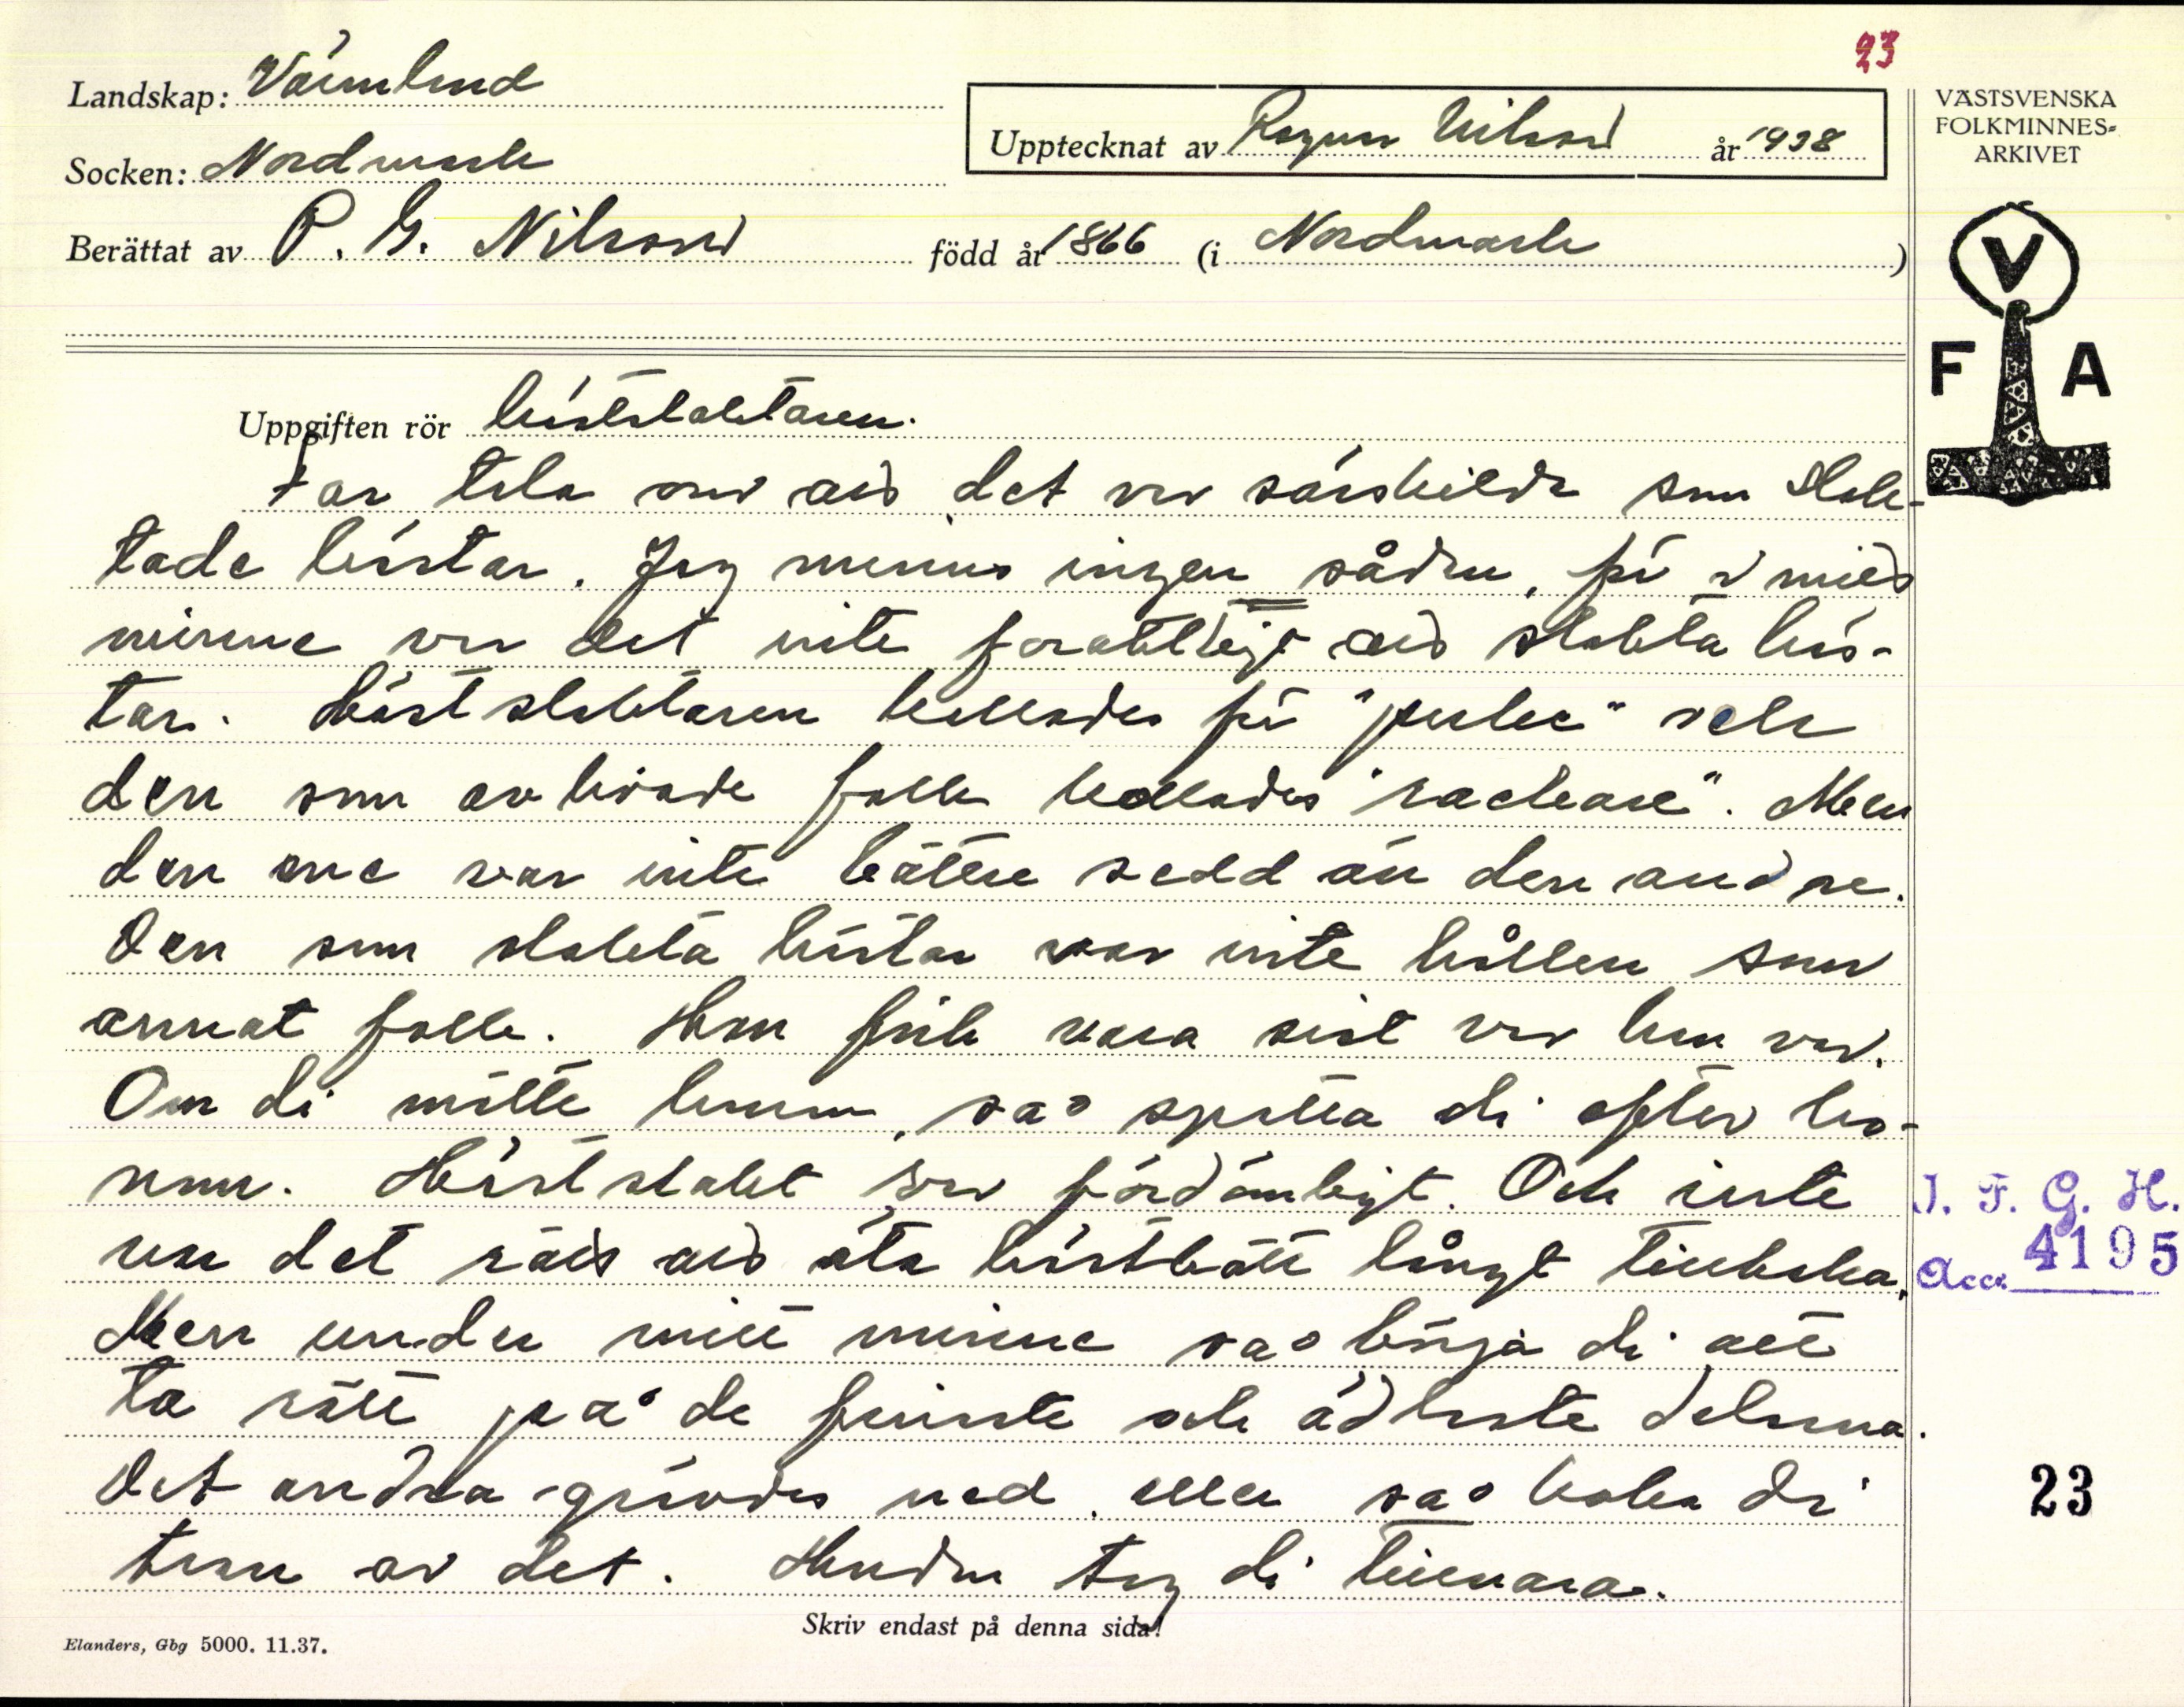 23
Landskap: Värmland
Socken: Nordmark
Upptecknat av Ragnar Nilsson år 1938
Berättat av P. G. Nilsson född år 1866 (i Nordmark)
VÄSTSVENSKA
FOLKMINNES-
ARKIVET
V
F A
Uppgiften rör hästslaktaren.
Far tala om att det var särskilda som slak-
tade hästar. Jag minns ingen sådan, för i mitt
minne var det inte föraktligt att slakta häs-
tar. Hästslaktaren kallades för och
den som avlivade folk kallades "rackare". Men
den ene var inte bättre sedd än den andre.
Den som slakta hästar var inte hållen som
annat folk. Han fick vara sist var han var.
Om di mötte honom, så spotta di efter ho-
nom. Hästslakt var fördömligt. Och inte
var det rätt att äta hästkött långt tillbaka.
Men under mitt minne så börja di att
ta rätt på de finaste och ädlaste delarna.
Det andra grävdes ned, eller så koka di
tran av det. Huden tog di tillvara.
J. F. G. H.
Acc. 4195
23
Skriv endast på denna sida!
Elanders, Gbg 5000. 11.37.